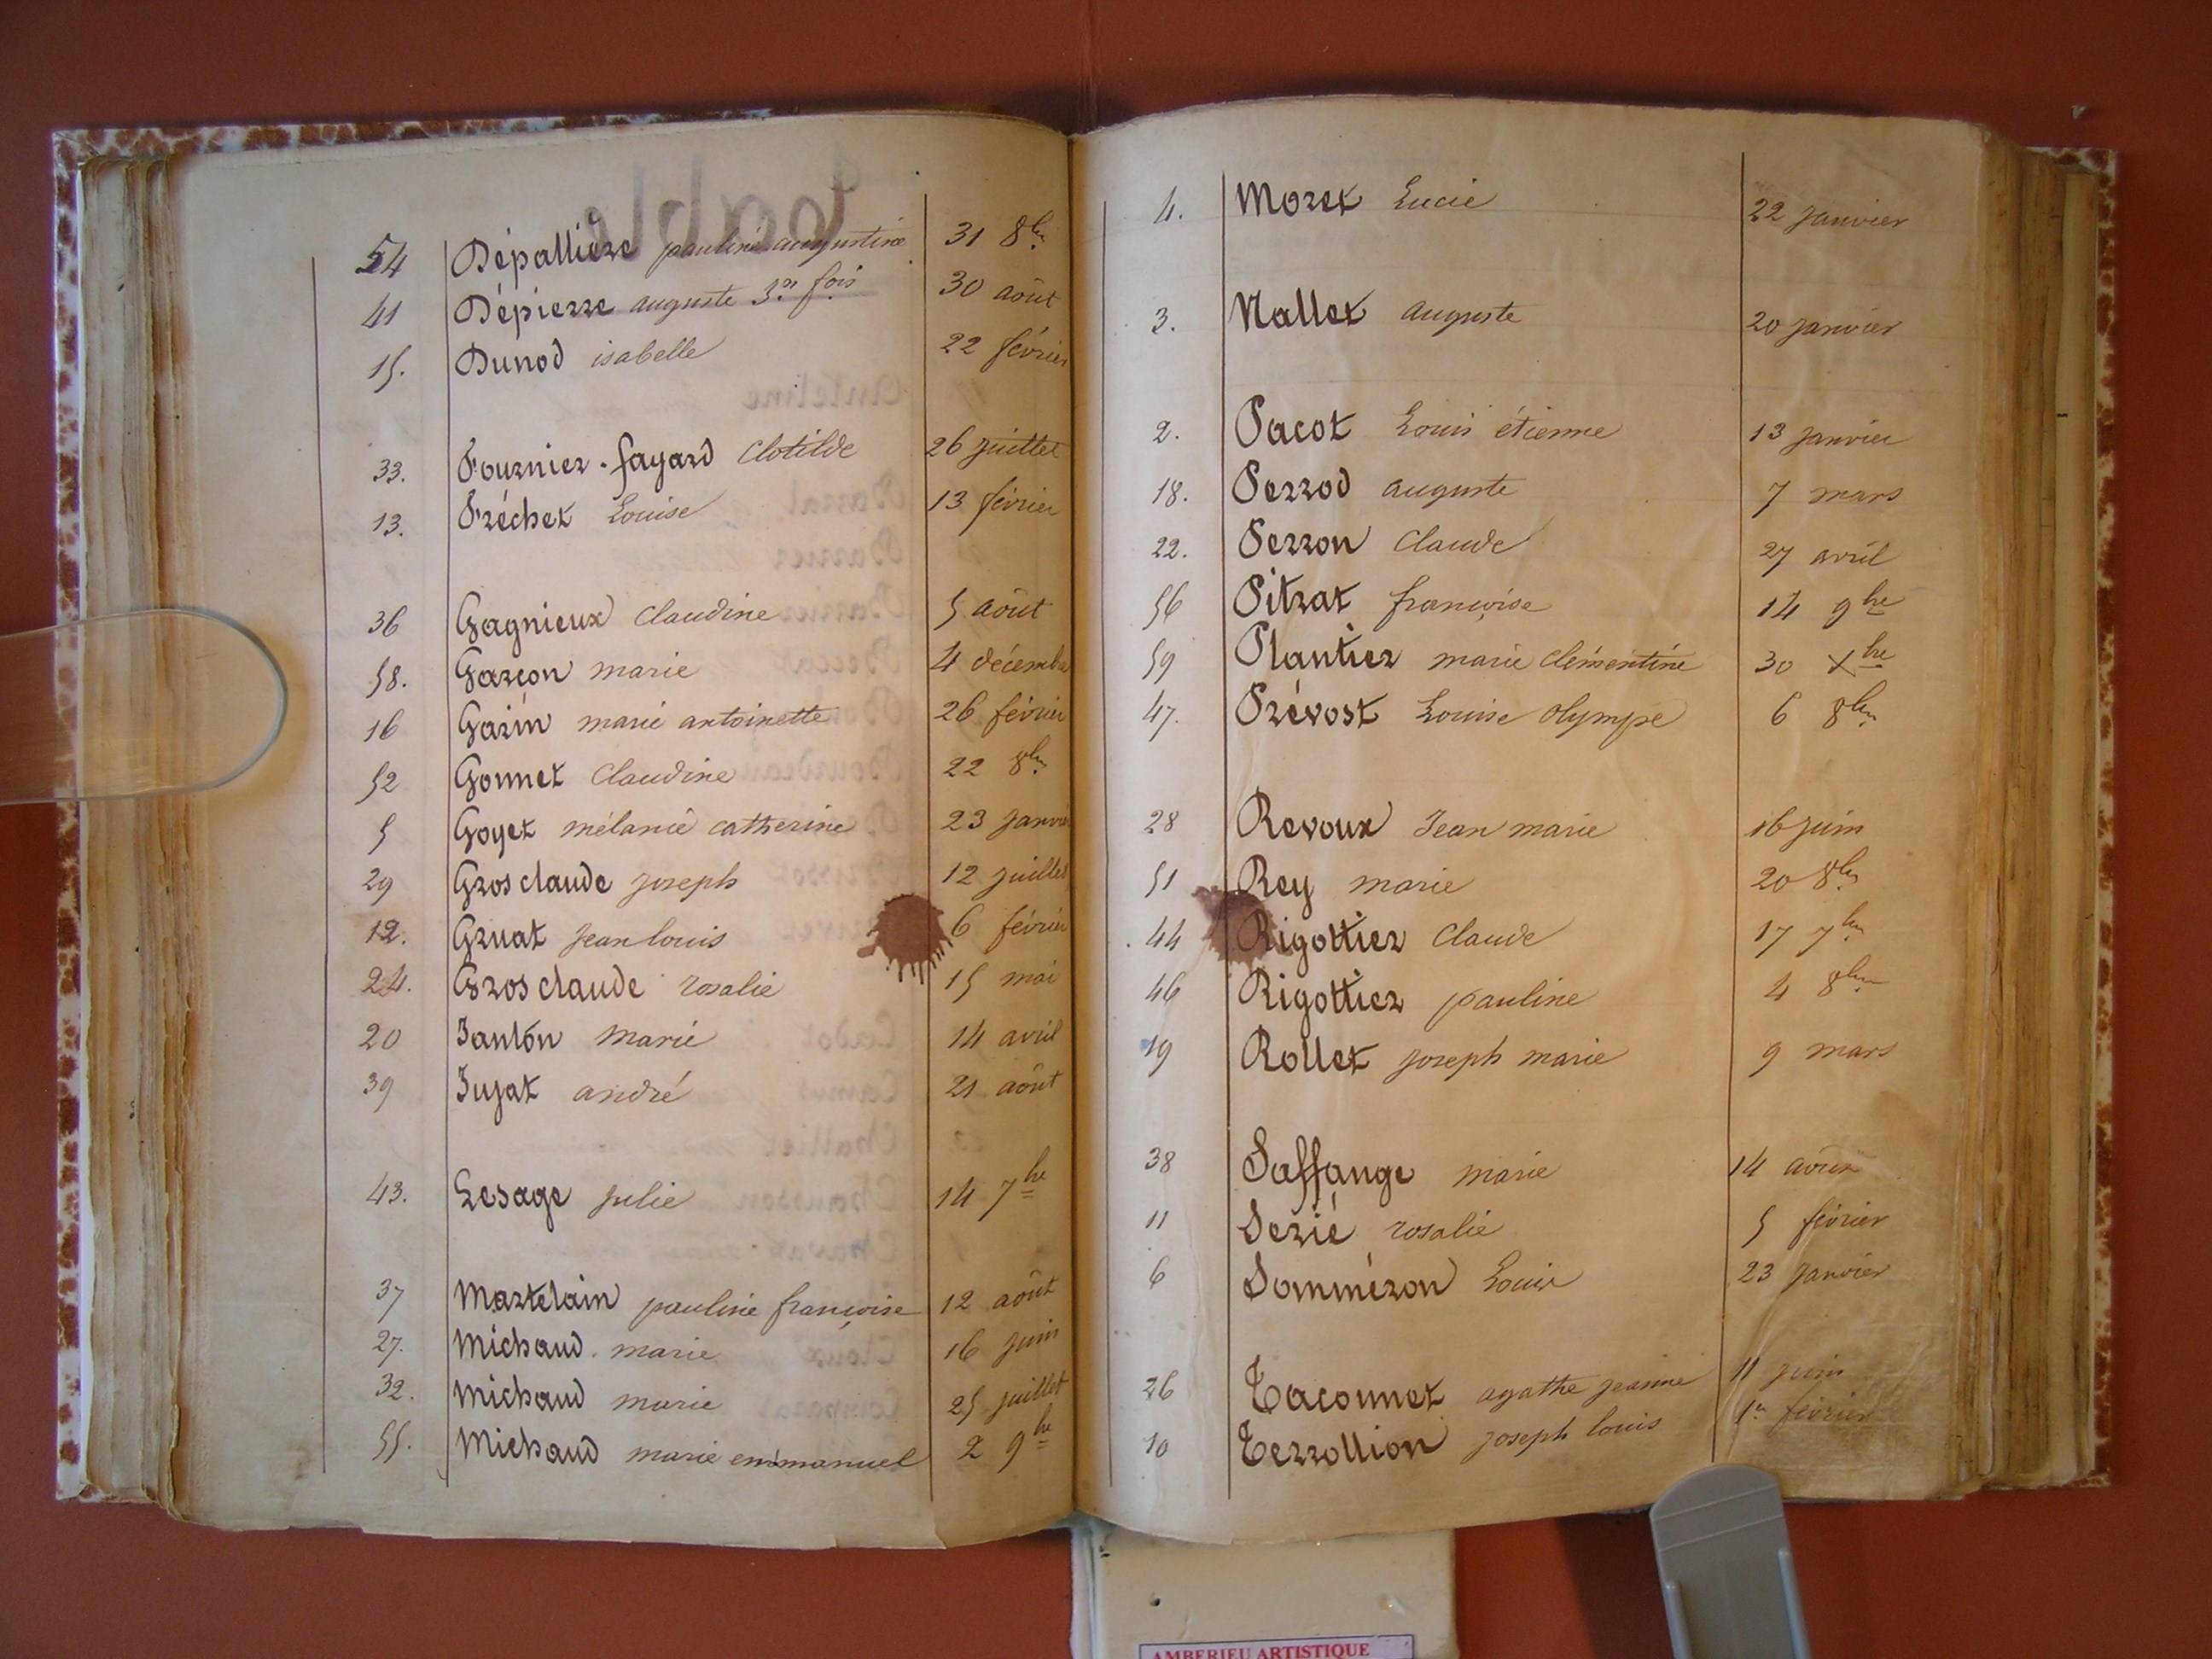 54 Dépallière pauline augustine 31 8bre
41 Dépierre auguste 3e fois 30 août
15. Dunod isabelle 22 février
33. Fournier-fayard Clotilde 26 juillet
13. Fréchet Louise 13 février
36 Gagnieux Claudine 5 août
58. Garçon marie 4 décembre
16 Garin marie antoinette 26 février
52 Gonnet Claudine 22 8bre
5 Goyet mélanie catherine 23 janvier
29 Gros claude joseph 12 juillet
12. Gruat jean louis 6 février
24. Gros claude rosalie 15 mai
20 Janlon marie 14 avril
39 Jujat andré 21 août
43. Lesage julie 14 7bre
37 Martelain pauline françoise 12 août
27. Michaud marie 16 juin
32. Michaud marie 25 juillet
55. Michaud marie emmanuel 2 9bre
4. Moret Lucie 22 janvier
3. Nallet auguste 20 janvier
2. Pacot Louis étienne 13 janvier
18. Perrod auguste 7 mars
22. Perron Claude 27 avril
56 Pitrat françoise 14 9bre
59 Plantier marie clémentine 30 Xbre
47. Prévost Louise olympe 6 8bre
28 Revoux Jean marie 16 juin
51 Rey marie 20 8bre
44 Rigottier Claude 17 7bre
46 Rigottier pauline 4 8bre
19 Rollet joseph marie 9 mars
38 Saffange marie 14 août
11 Serié rosalie 5 février
6 Somméron Louis 23 janvier
26 Taconnet agathe jeanne 11 juin
10 Terrollion joseph louis 1er février
AMBERIEU ARTISTIQUE